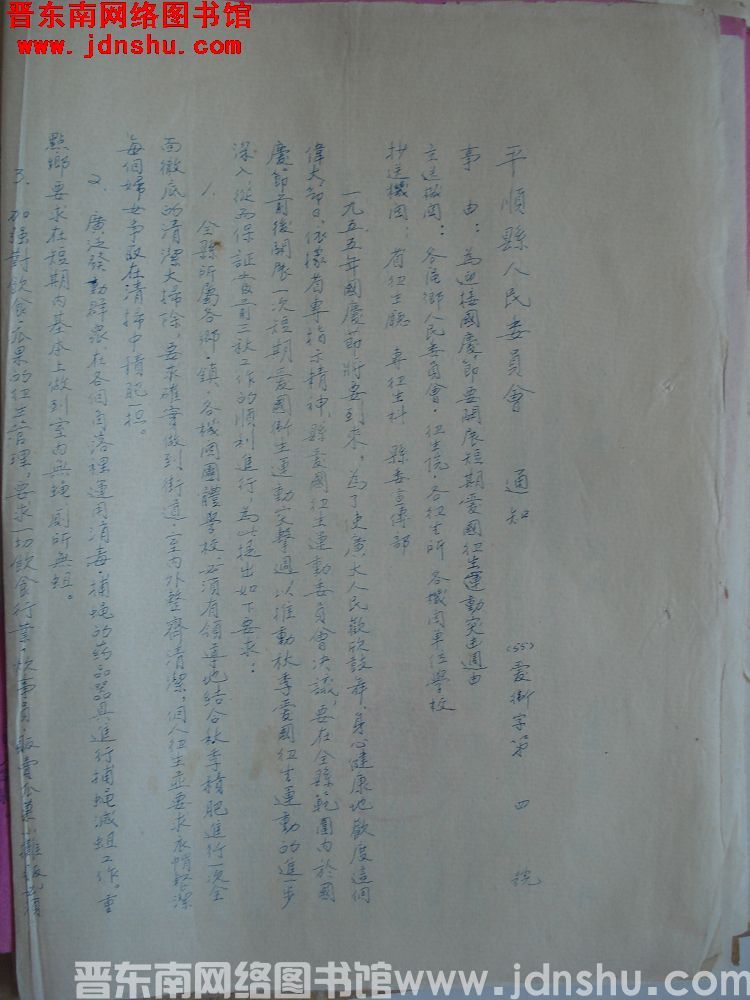 晋东南网络图书馆
www.jdnshu.com
平順縣人民委員會 通知 (55)愛衛字第四號
事由：為迎接國慶節要開展短期愛國衛生運動突击週由
主送機関：各區鄉人民委員會·衛生院·各衛生所 各機関單位學校
抄送機関：省衛生廳 專衛生科 縣委宣傳部
一九五五年國慶節將要到來，為了使廣大人民歡欣鼓舞、身心健康地歡度這個
偉大節日，依據省專指示精神，縣愛國衛生運動委員會決議，要在全縣範圍內於國
慶節前後開展一次短期愛國衛生運動突擊週，以推動秋季愛國衛生運動的進一步
深入，從而保証三秋工作的順利進行，為此提出如下要求：
1. 全縣所屬各鄉·鎮·各機関團體學校，必須有領導地結合秋季積肥進行一次全
面徹底的清潔大掃除，要求確實做到街道·室內外整齊清潔，個人衛生並要求衣帽整潔
每個婦女爭取在清掃中積肥一担。
2. 廣泛發動群衆，在各個角落裡運用消毒·捕蝇的葯品器具進行捕蝇滅蛆工作。重
點鄉要求在短期內基本上做到室內無蝇 厠所無蛆。
3. 加强對飲食瓜果的衛生管理，要求一切飲食行業·炊事員·販賣
晋东南网络图书馆www.jdnshu.com